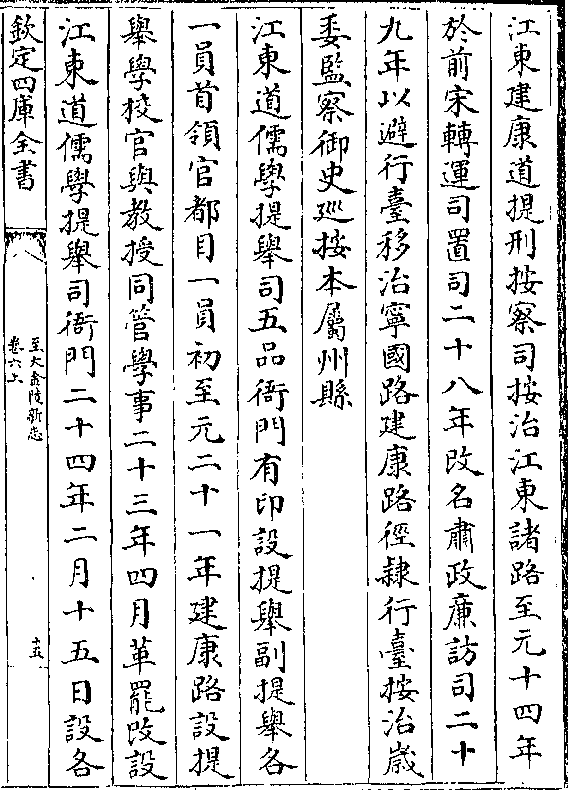 江東建康道提刑按察司按治江東諸路至元十四年
於前宋轉運司置司二十八年改名肅政廉訪司二十
九年以避行臺移治寧國路建康路徑隸行臺按治歲
委監察御史廵按本屬州縣
江東道儒學提舉司五品衙門有印設提舉副提舉各
一員首領官都目一員初至元二十一年建康路設提
舉學校官與教授同管學事二十三年四月革罷改設
江東道儒學提舉司衙門二十四年二月十五日設各
欽定四庫全書
至大金陵新志
卷六上
十五